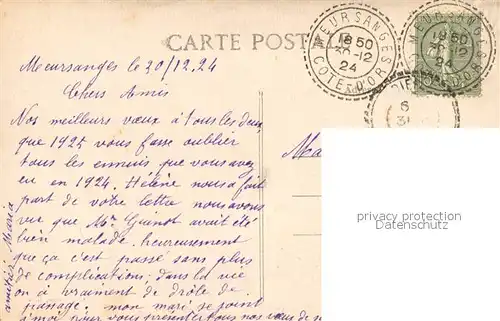 CARTE POSTALE
MEURSANGES
18 50
20-12
24
COTE-D'OR
MEURSANGES
18 50
20-12
24
COTE-D'OR
6
31
Meursanges le 20/12.24
Chers Amis
Nos meilleurs vœux à tous les deux
que 1925 vous fasse oublier
tous les ennuis que vous avez
eu en 1924. Hélène nous a fait
part de votre lettre nous avons
vue que Mr Guinot avait été
bien malade. heureusement
que ça c'est passé sans plus
de complications. dans la vie
on a vraiment de drôle de
passage. mon mari se joint
à moi pour vous présenter tous nos vœux de
amitiés Maria
Ma
privacy protection
Datenschutz